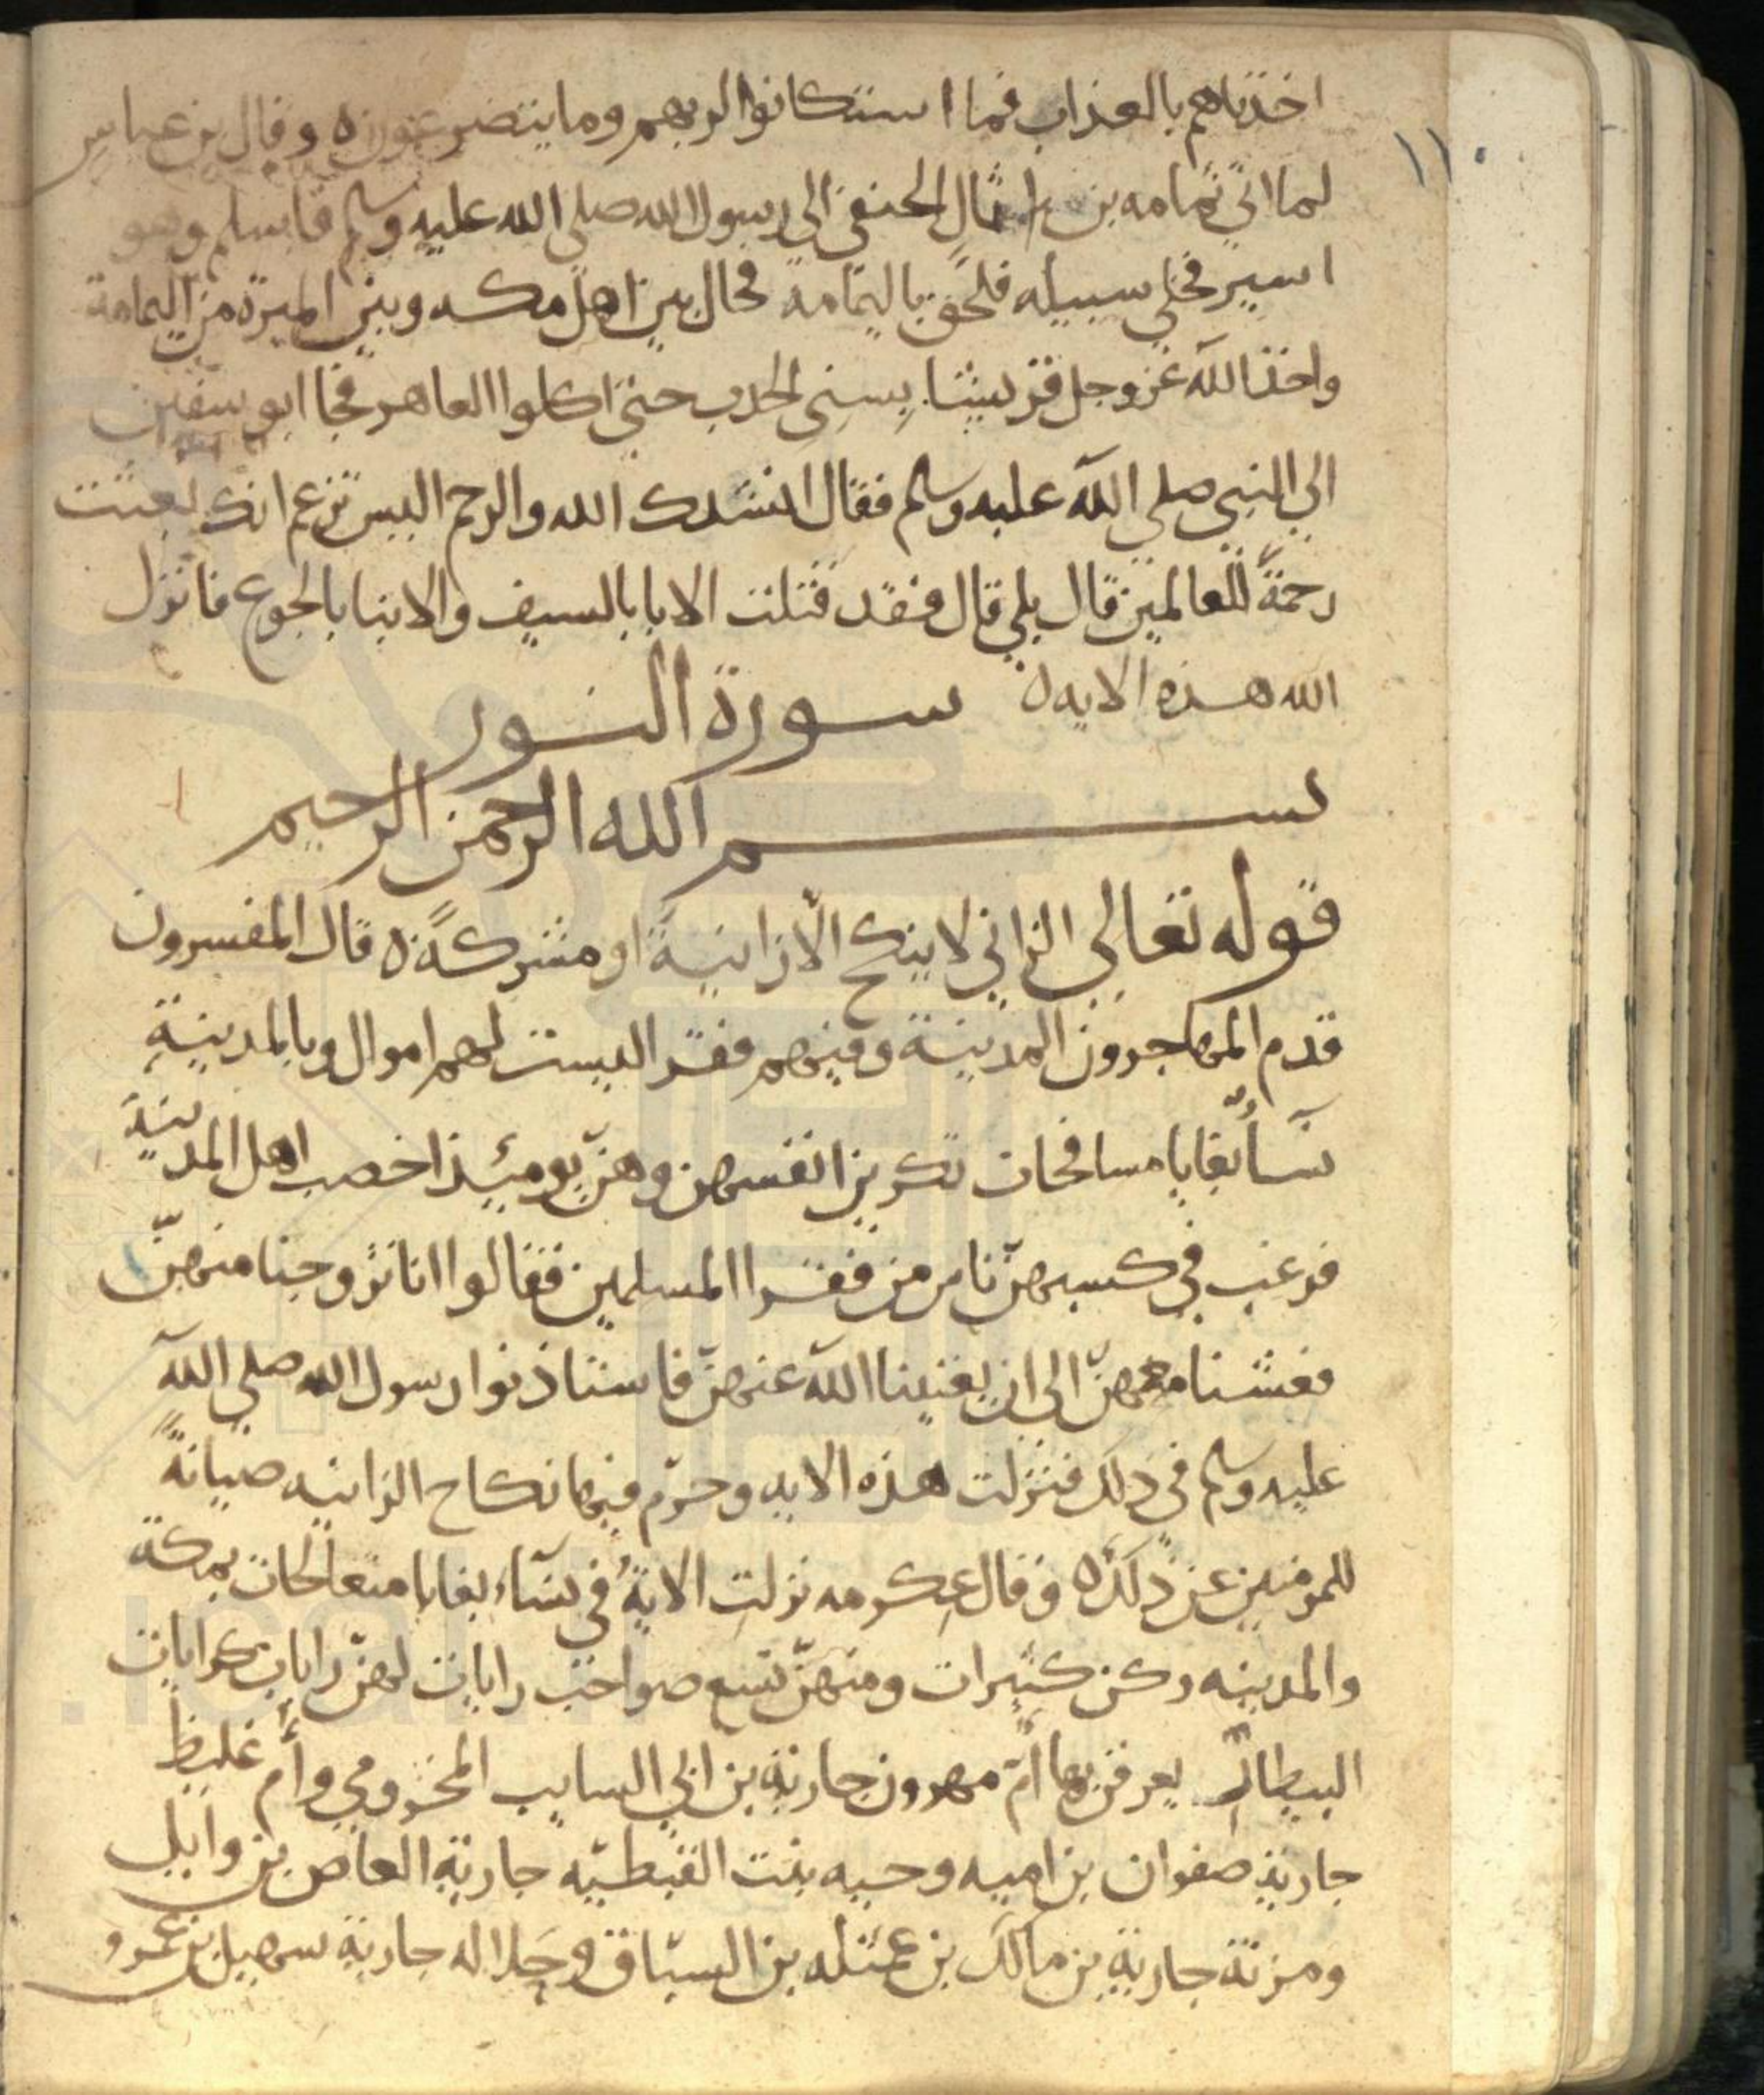 ١١٠
اخذناهم بالعذاب فما استكانوا لربهم وما يتضرعون ه وقال بن عباس
لما اتي ثمامه بن اثال الحنفي الي رسول الله صلي الله عليه وسلم فاسلم وهو
اسير فخلي سبيله فلحق باليمامه فحال بين اهل مكه وبين الميرة من اليمامة
واخذ الله عز وجل قريشا بسني الجدب حتي اكلوا العلهز فجا ابو سفين
الي النبي صلي الله عليه وسلم فقال انشدك الله والرحم اليس تزعم انك بعثت
رحمةً للعالمين قال بلي قال فقد قتلت الابا بالسيف والابنا بالجوع فانزل
الله هذه الايه ه سورة النور
بسم الله الرحمن الرحيم
قوله تعالي الزاني لا ينكح الّا زانيةً او مشركةً ه قال المفسرون
قدم المهاجرون المدينة وفيهم فقرا ليست لهم اموال وبالمدينة
نسآٌ بغايا مسافحات تكرين انفسهن وهنّ يومئذ اخصب اهل المدينة
فرغب في كسبهنّ ناس من فقرا المسلمين فقالوا انا تزوجنا منهنّ
فعشنا معهنّ الي ان يغنينا الله عنهنّ فاستاذنوا رسول الله صلي الله
عليه وسلم في ذلك فنزلت هذه الايه وحرّم فيها نكاح الزانيه صيانةً
للمومنين عن ذلك ه وقال عكرمه نزلت الايةُ في نسآء بغايا متعالجات بمكة
والمدينه وكن كثيرات ومنهنّ تسع صواحب رايات لهنّ رايات كرايات
البيطار يعرفن بها أمّ مهرون جارية بن ابي السايب المخزومي وأم غليظ
جارية صفوان بن اميه وحيه بنت القبطيّه جارية العاص بن وايل
ومزنة جارية بن مالك بن عمثله بن السبّاق وجلاله جارية سهيل بن عمرو